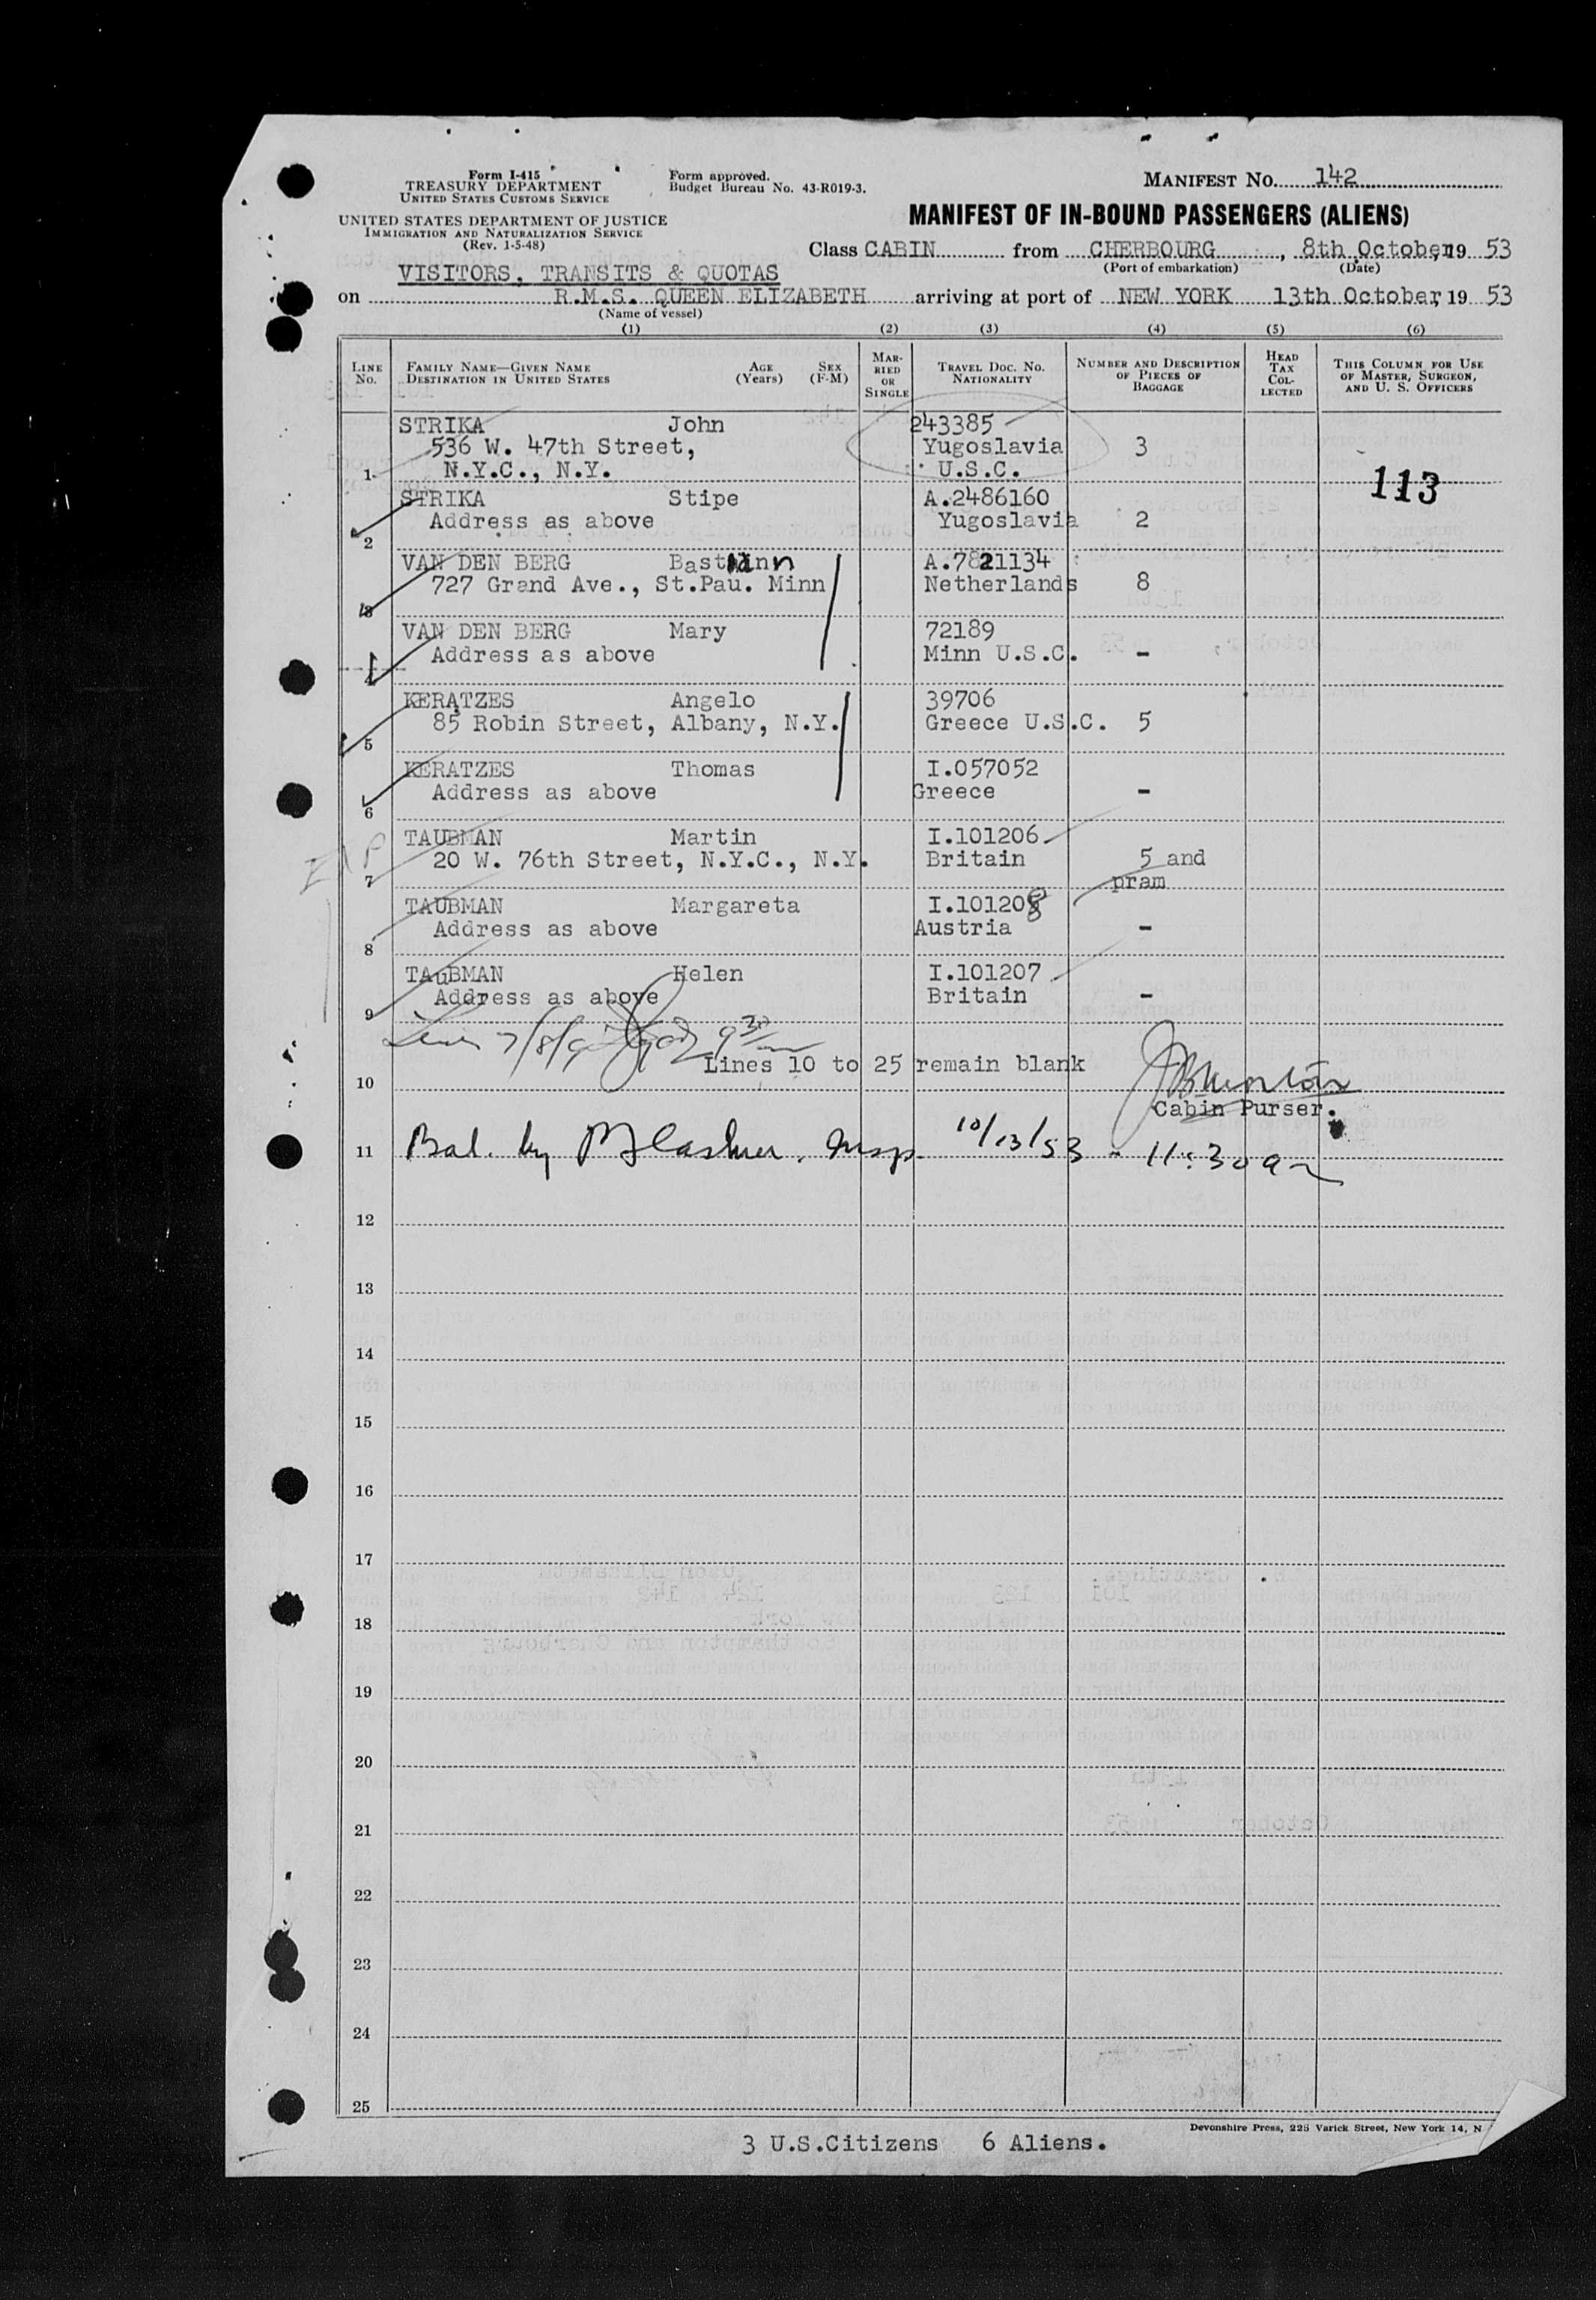 Form I-415
TREASURY DEPARTMENT
UNITED STATES CUSTOMS SERVICE
UNITED STATES DEPARTMENT OF JUSTICE
IMMIGRATION AND NATURALIZATION SERVICE
(Rev. 1-5-48)
Form approved.
Budget Bureau No. 43-R019-3.
MANIFEST NO. 142
MANIFEST OF IN-BOUND PASSENGERS (ALIENS)
Class CABIN from CHERBOURG, 8th October, 19 53
(Port of embarkation) (Date)
VISITORS, TRANSITS & QUOTAS
on R.M.S. QUEEN ELIZABETH arriving at port of NEW YORK 13th October, 19 53
(Name of vessel)
(1) (2) (3) (4) (5) (6)
LINE NO.
FAMILY NAME—GIVEN NAME
DESTINATION IN UNITED STATES
AGE (Years)
SEX (F-M)
MARRIED OR SINGLE
TRAVEL DOC. NO.
NATIONALITY
NUMBER AND DESCRIPTION OF PIECES OF BAGGAGE
HEAD TAX COLLECTED
THIS COLUMN FOR USE OF MASTER, SURGEON, AND U. S. OFFICERS
STRIKA John 243385
536 W. 47th Street, Yugoslavia 3
1 N.Y.C., N.Y. U.S.C.
113
STRIKA Stipe A.2486160
Address as above Yugoslavia 2
2
VAN DEN BERG Bastiaan A.7821134
727 Grand Ave., St.Pau. Minn Netherlands 8
3
VAN DEN BERG Mary 72189
Address as above Minn U.S.C. -
4
KERATZES Angelo 39706
85 Robin Street, Albany, N.Y. Greece U.S.C. 5
5
KERATZES Thomas I.057052
Address as above Greece -
6
TAUBMAN Martin I.101206
20 W. 76th Street, N.Y.C., N.Y. Britain 5 and
7 pram
TAUBMAN Margareta I.101208
Address as above Austria -
8
TAuBMAN Helen I.101207
Address as above Britain -
9
Lines 7/8/9
Lines 10 to 25 remain blank
10
Cabin Purser.
11 Bal. by Insp. 10/13/53 - 11:30 am
12
13
14
15
16
17
18
19
20
21
22
23
24
25
Devonshire Press, 225 Varick Street, New York 14, N
3 U.S.Citizens 6 Aliens.